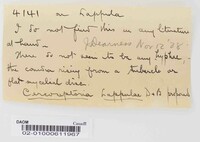 4141 on Lappula
I do not find this in any literature
at hand. J Dearness Nov 12 '28
There do not seem to be any hyphae,
the conidia rising from a tubercle or
flat mycelial disc.
Cercosporina Lappulae D+B proposed
DAOM
Canada
02-01000011967